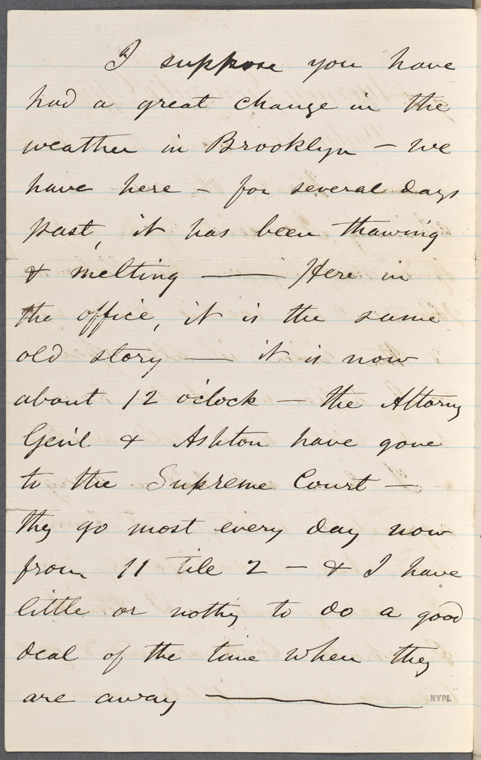 I suppose you have
had a great change in the
weather in Brooklyn — we
have here — for several days
past, it has been thawing
& melting —— Here in
the office, it is the same
old story — it is now
about 12 o'clock — the Attorny
Gen'l & Ashton have gone
to the Supreme Court —
they go most every day now
from 11 till 2 — & I have
little or nothing to do a good
deal of the time when they
are away ————
NYPL